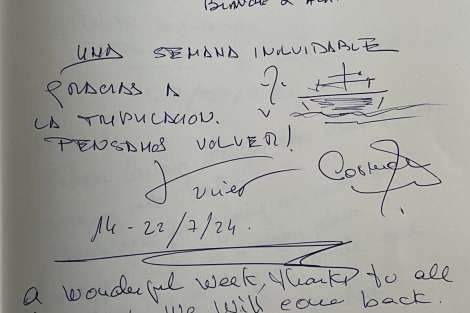 UNA SEMANA INOLVIDABLE
GRACIAS A
LA TRIPULACION.
PENSAMOS VOLVER!
Javier
14 - 22/7/24.
a wonderful week, thanks to all
We will come back.